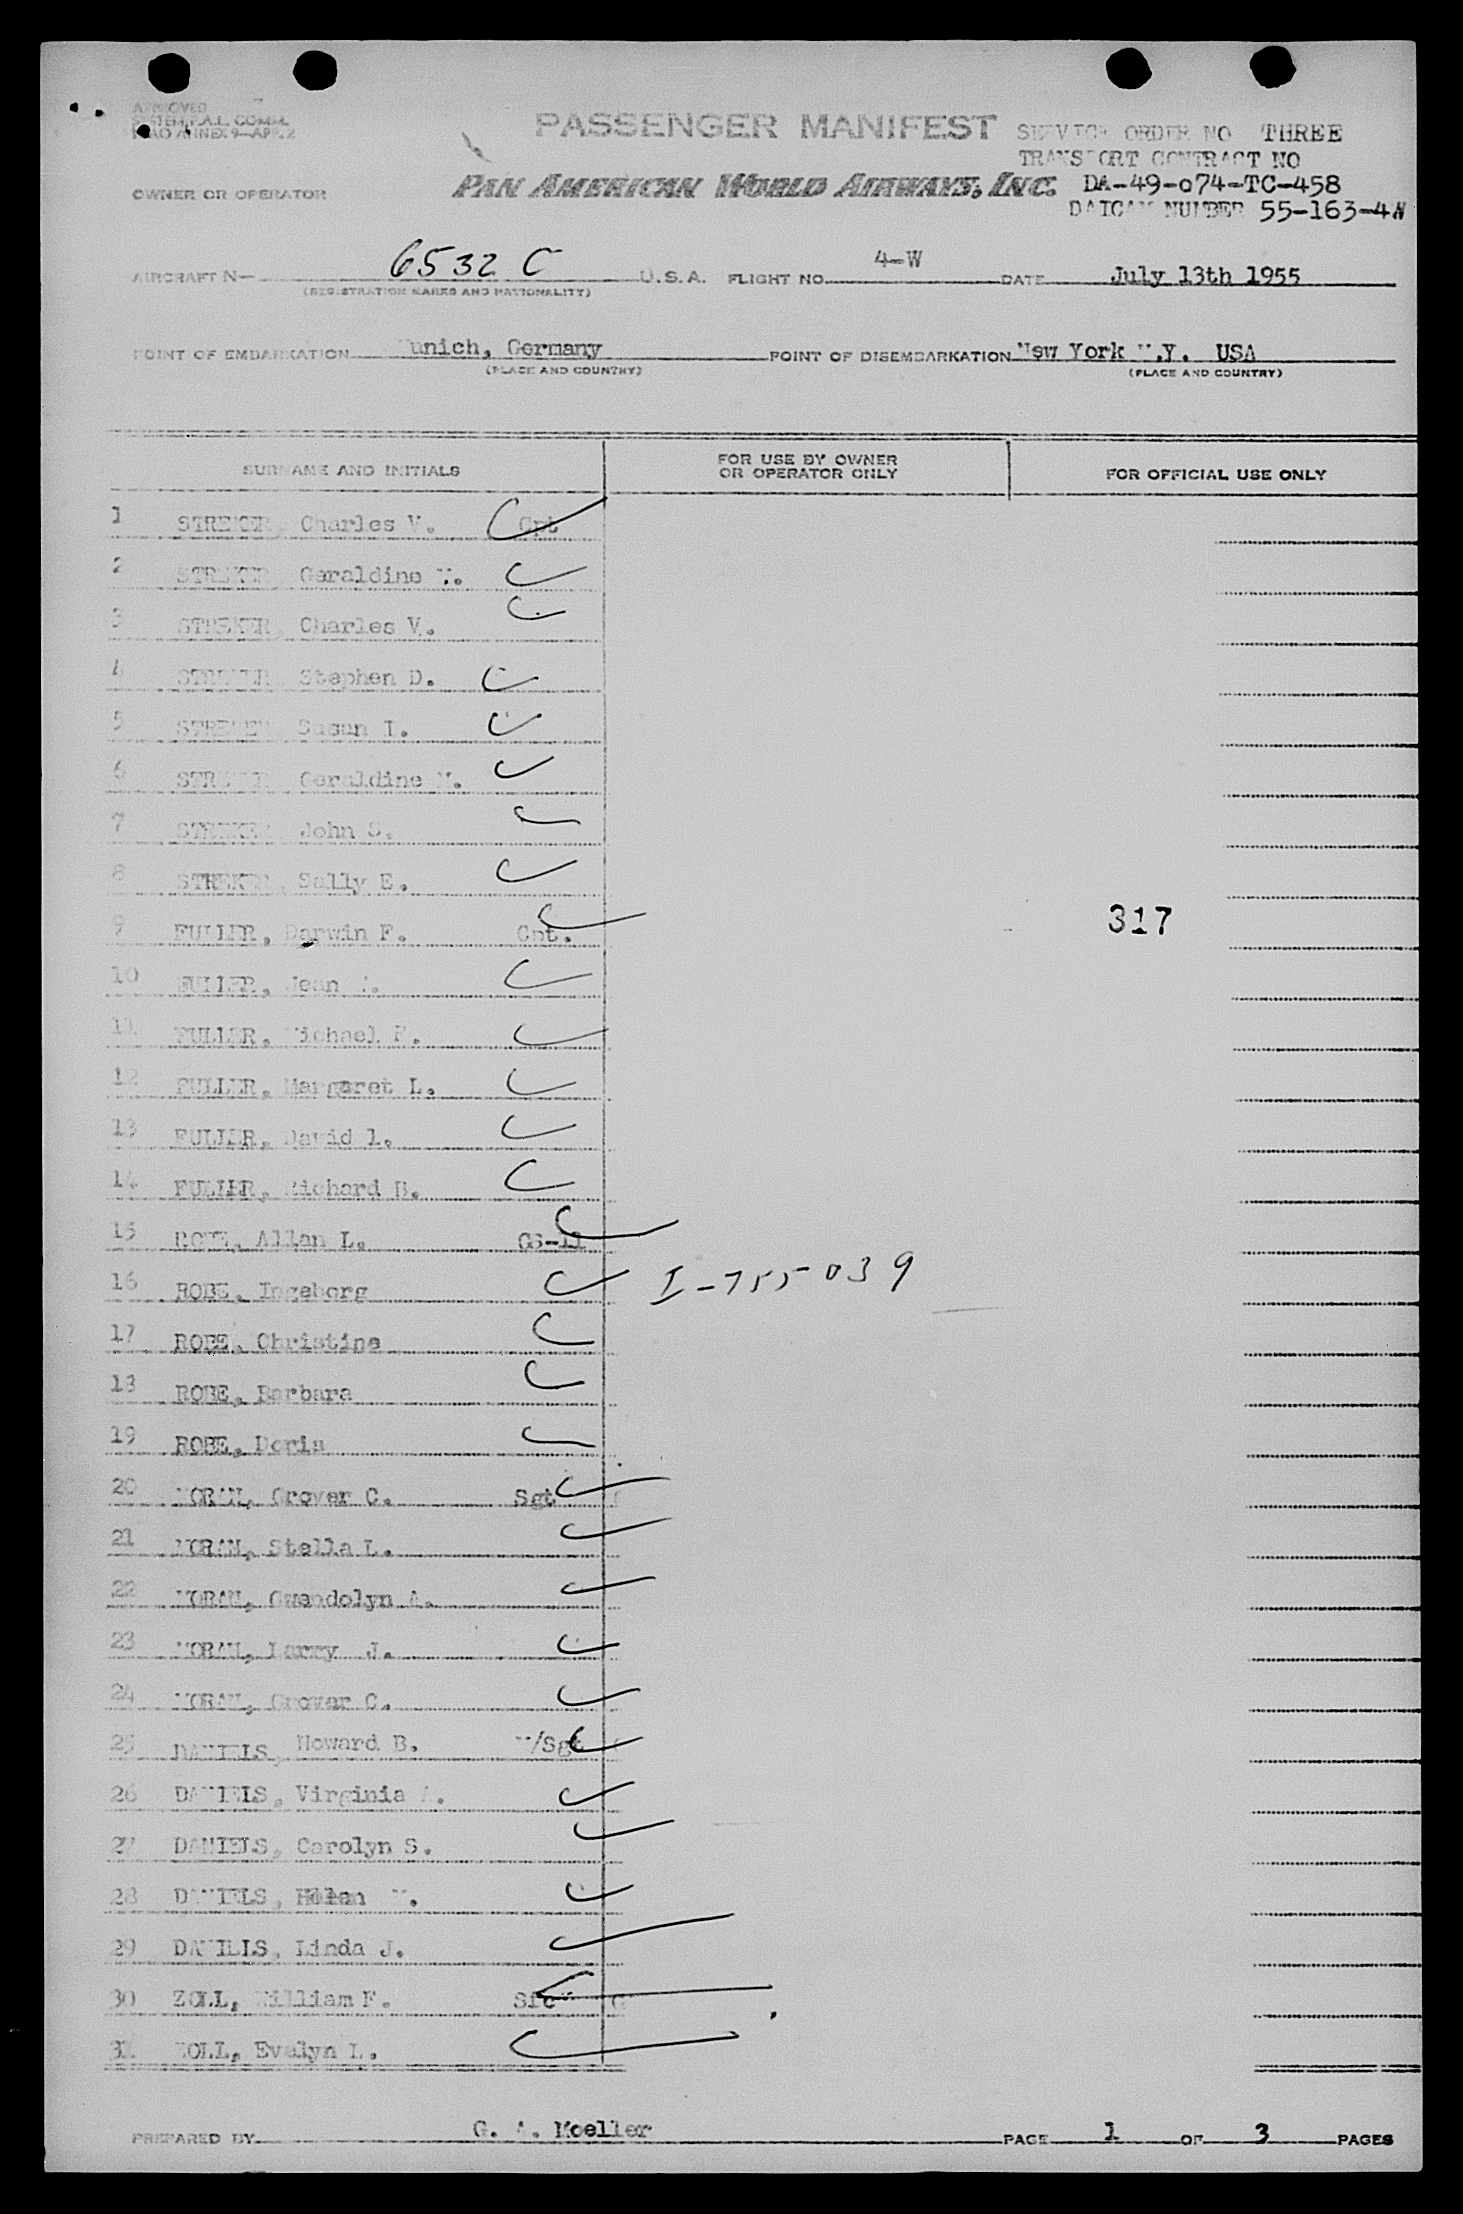 APPROVED
SYSTEM F.A.L. COMM.
ICAO ANNEX 9—APP. 2
PASSENGER MANIFEST
SERVICE ORDER NO THREE
TRANSPORT CONTRACT NO
OWNER OR OPERATOR PAN AMERICAN WORLD AIRWAYS, INC. DA-49-o74-TC-458
NUMBER 55-163-4N
AIRCRAFT N— 6532 C U.S.A. FLIGHT NO. 4-W DATE July 13th 1955
(REGISTRATION MARKS AND NATIONALITY)
POINT OF EMBARKATION Munich, Germany POINT OF DISEMBARKATION New York N.Y. USA
(PLACE AND COUNTRY) (PLACE AND COUNTRY)
SURNAME AND INITIALS FOR USE BY OWNER OR OPERATOR ONLY FOR OFFICIAL USE ONLY
1 STREKER, Charles V. Cpt
2 STREKER, Geraldine M.
3 STREKER, Charles V.
4 STREKER, Stephen D.
5 STREKER, Susan I.
6 STREKER, Geraldine M.
7 STREKER, John S.
8 STREKER, Sally E.
9 FULLER, Darwin F. Cpt. 317
10 FULLER, Jean
11 FULLER, Michael F.
12 FULLER, Margaret L.
13 FULLER, David L.
14 FULLER, Richard B.
15 ROBE, Allan L. GS-11
16 ROBE, Ingeborg I-755039
17 ROBE, Christine
18 ROBE, Barbara
19 ROBE, Doris
20 MORAN, Grover C. Sgt
21 MORAN, Stella L.
22 MORAN, Gwendolyn A.
23 MORAN, Larry J.
24 MORAN, Grover C.
25 DANIELS, Howard B. M/Sgt
26 DANIELS, Virginia A.
27 DANIELS, Carolyn S.
28 DANIELS, Helen M.
29 DANIELS, Linda J.
30 ZOLL, William F. Sfc
31 ZOLL, Evelyn L.
PREPARED BY G. A. Moeller PAGE 1 OF 3 PAGES